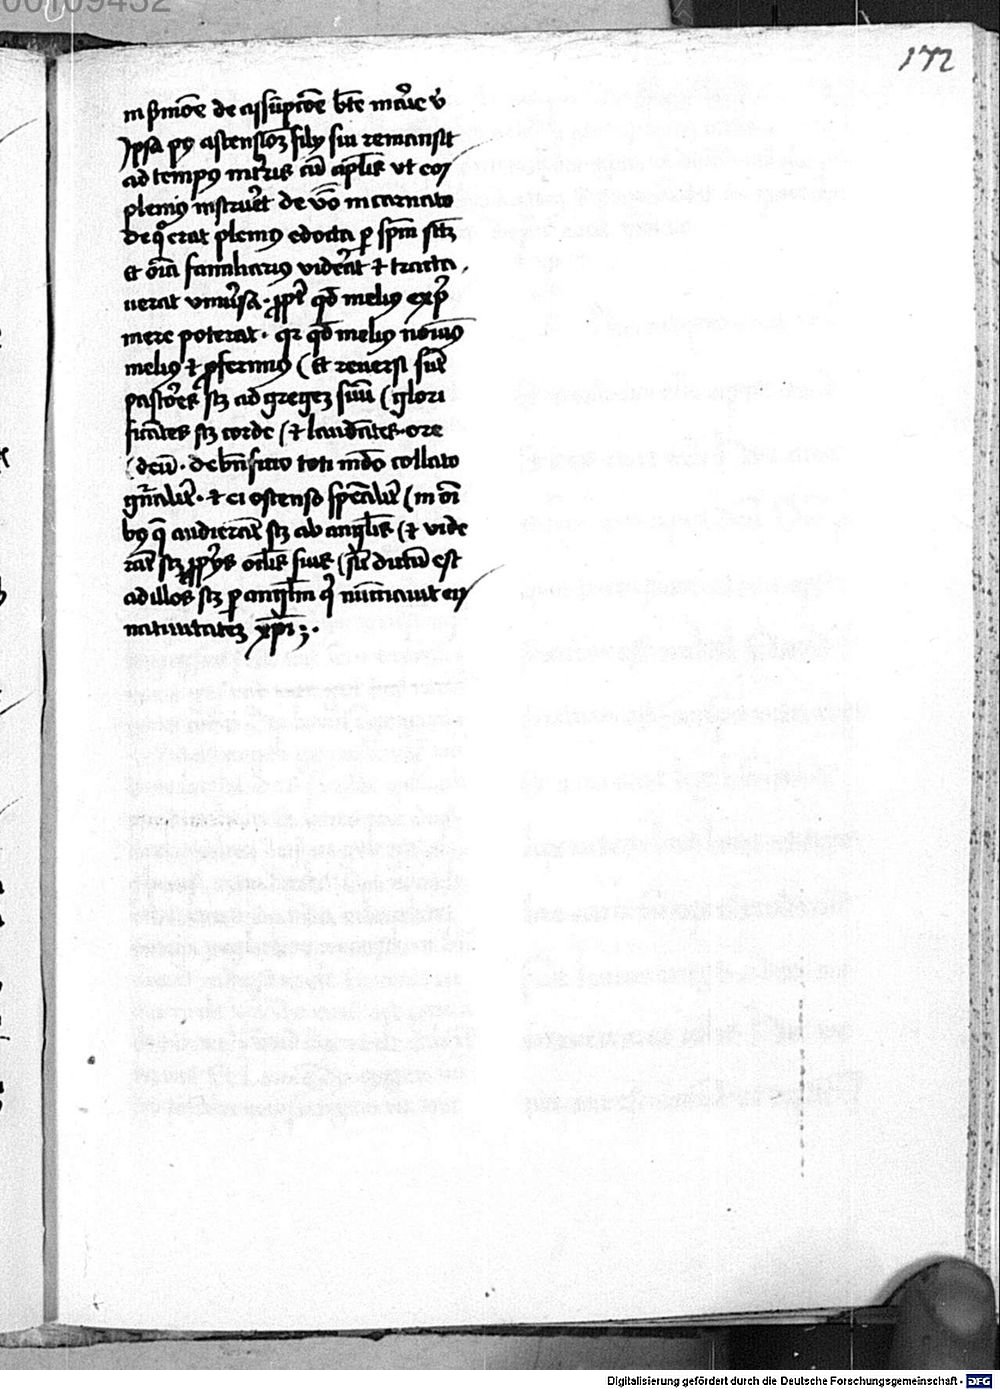 00109432
172
in sermone de assumptione beate marie v
Ipsa post ascensionem filii sui remansit
ad tempus in terris cum apostolis ut eos
plenius instrueret de verbo incarnato
de quo erat plenius edocta per spiritum sanctum
et omnia familiarius viderat et tracta
verat universa. propter quod melius expri
mere poterat. quia quod melius novimus
melius et proferimus (Et reversi sunt
pastores scilicet ad gregem suum (glori
ficantes scilicet corde (et laudantes. ore
(deum. de beneficio toti mundo collato
generaliter. et ei ostenso specialiter (in omni
bus que audierant scilicet ab angelis (et vide
rant scilicet propriis oculis suis (sicut dictum est
ad illos scilicet per angelum qui nunciavit eis
nativitatem christi
Digitalisierung gefördert durch die Deutsche Forschungsgemeinschaft - DFG